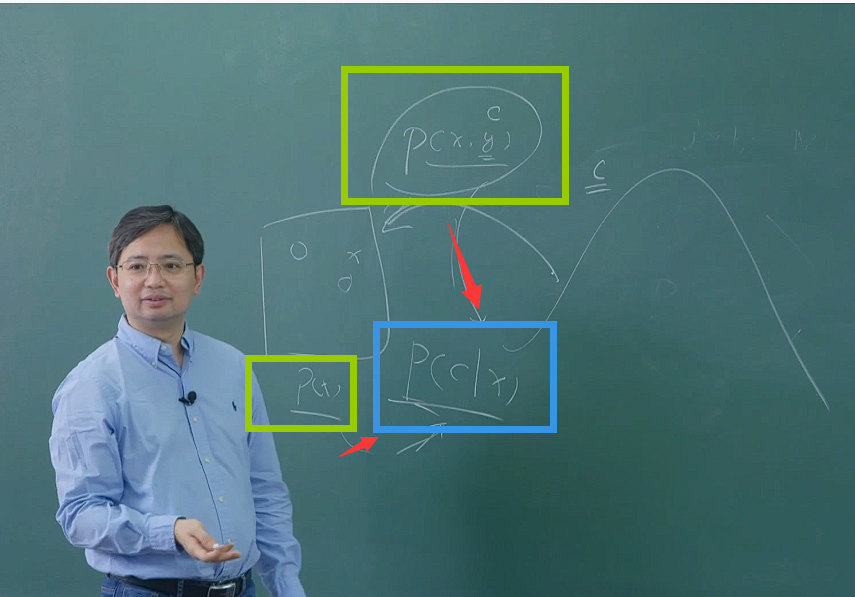 c
P(x, y)
c
o
x
o
P(x)
P(c|x)